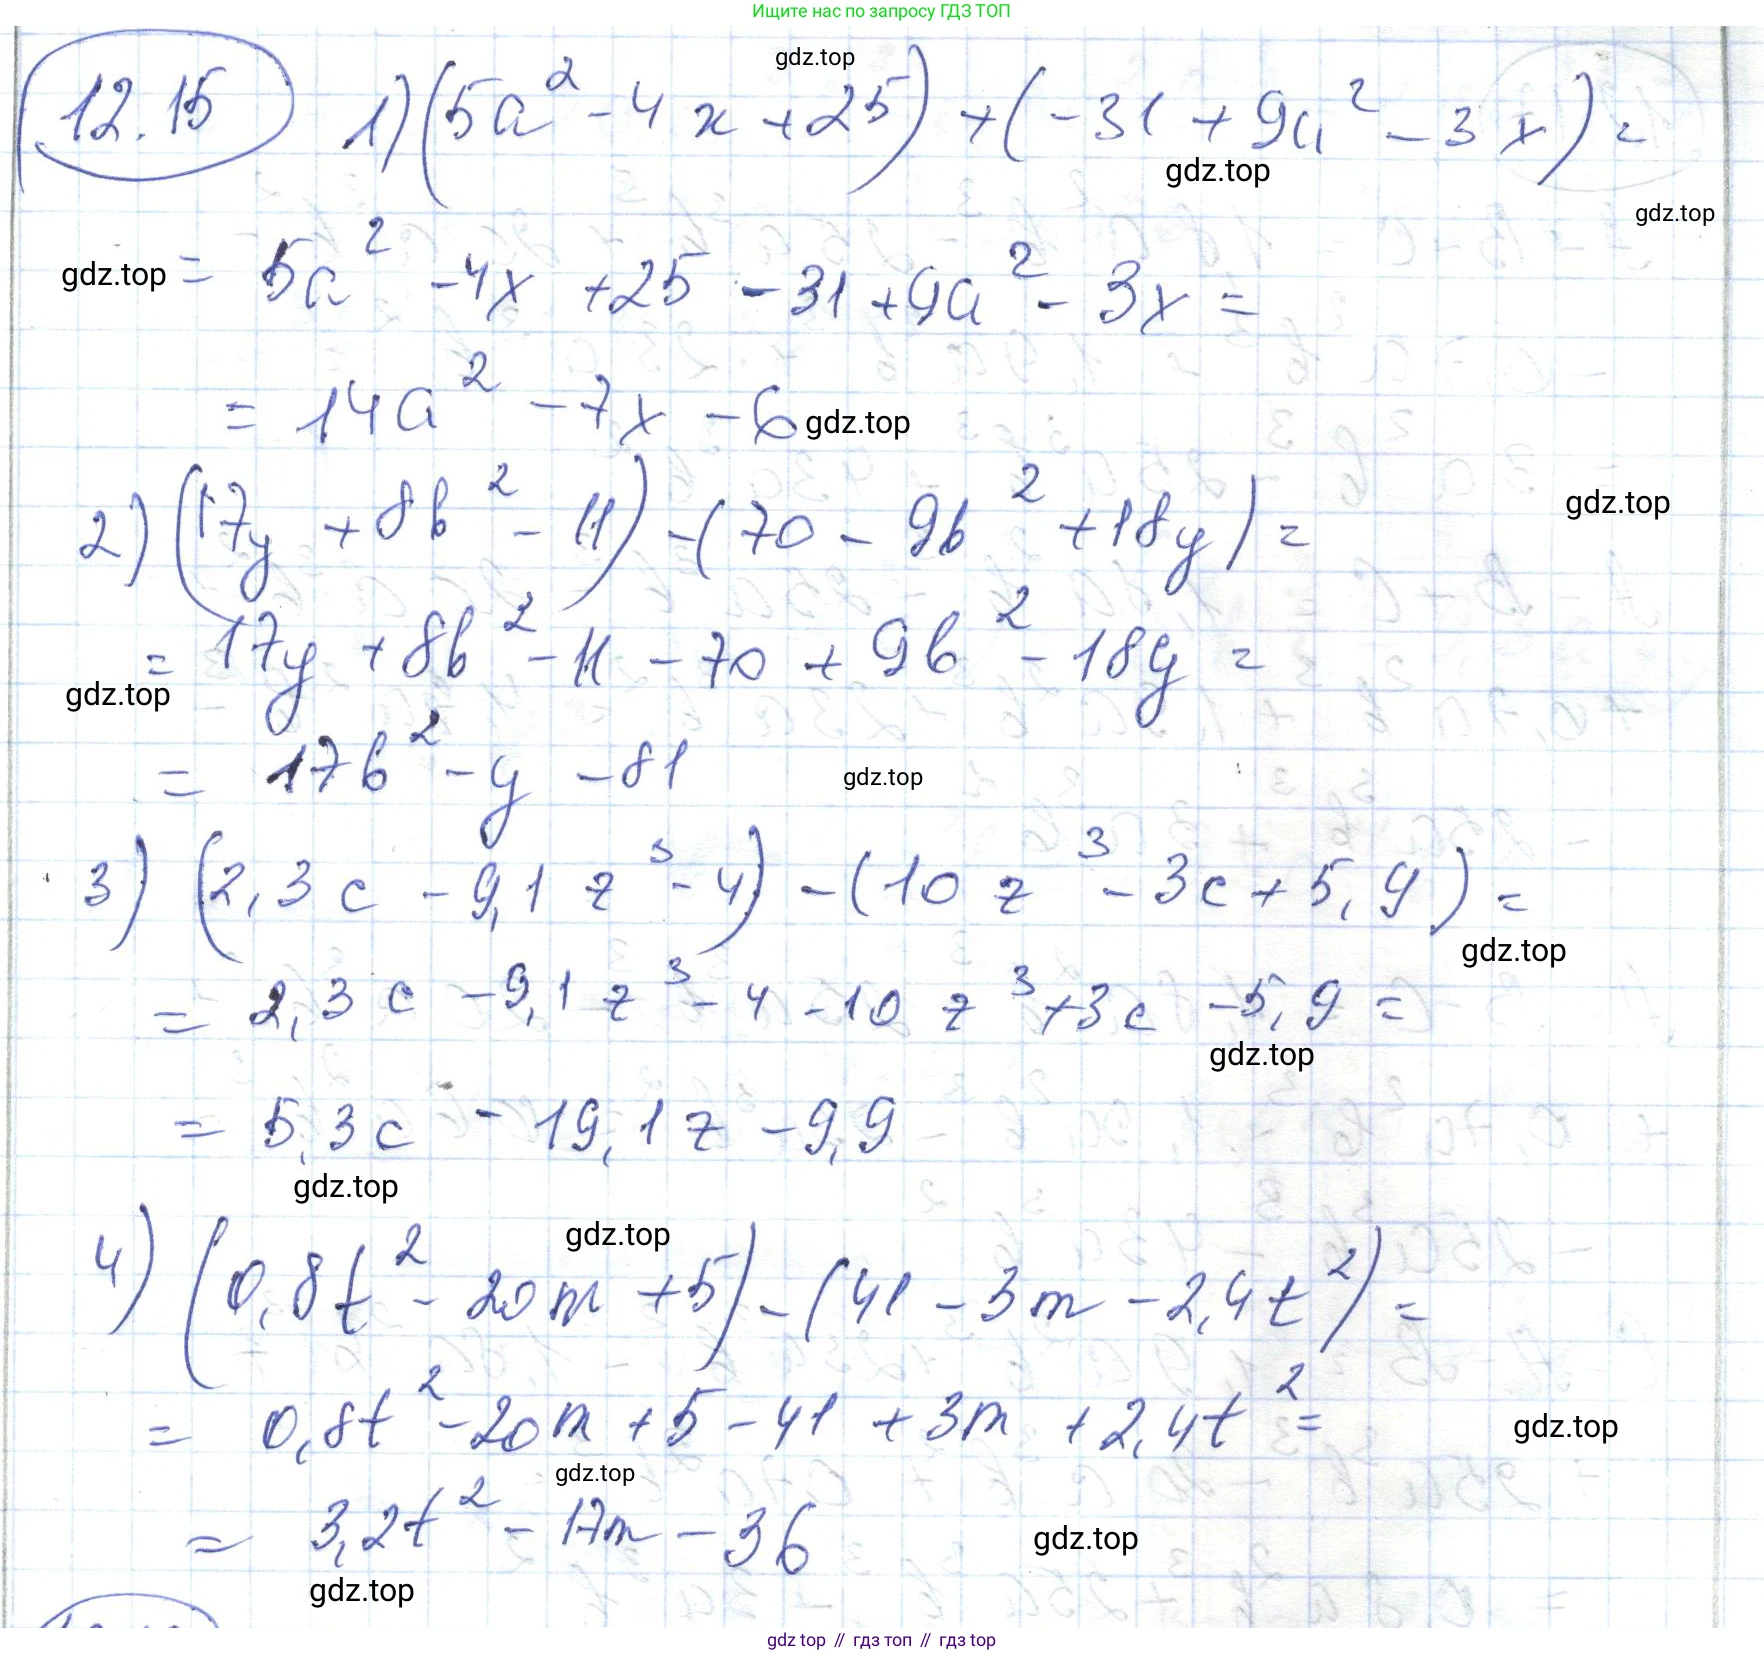 Ищите нас по запросу ГДЗ ТОП
gdz.top
12.15 1) (5a² - 4x + 25) + (-31 + 9a² - 3x) =
gdz.top
gdz.top
gdz.top = 5a² - 4x + 25 - 31 + 9a² - 3x =
= 14a² - 7x - 6 gdz.top
gdz.top
2) (17y + 8b² - 11) - (70 - 9b² + 18y) =
= 17y + 8b² - 11 - 70 + 9b² - 18y =
gdz.top
= 17b² - y - 81 gdz.top
3) (2,3c - 9,1z³ - 4) - (10z³ - 3c + 5,9) =
gdz.top
= 2,3c - 9,1z³ - 4 - 10z³ + 3c - 5,9 =
gdz.top
= 5,3c - 19,1z - 9,9
gdz.top
gdz.top
4) (0,8t² - 20m + 5) - (41 - 3m - 2,4t²) =
= 0,8t² - 20m + 5 - 41 + 3m + 2,4t² =
gdz.top
gdz.top
= 3,2t² - 17m - 36
gdz.top
gdz.top
gdz top // гдз топ // gdz top